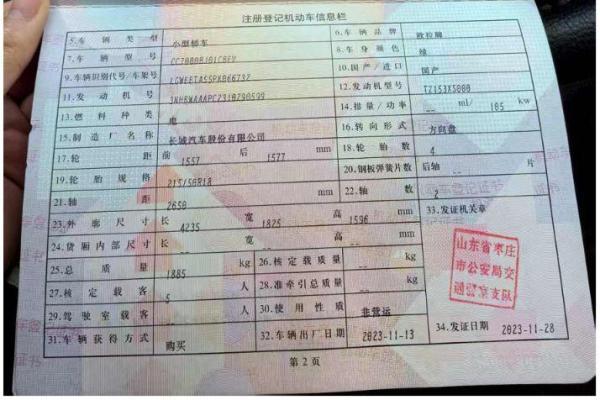 注册登记机动车信息栏
5.车辆类型 小型轿车 6.车辆品牌 欧拉牌
7.车辆型号 8.车身颜色 绿
9.车辆识别代号/车架号 10.国产/进口 国产
11.发动机号 12.发动机型号 TZ153XS000
13.燃料种类 电 14.排量/功率 -- ml/ 105 kw
15.制造厂名称 长城汽车股份有限公司 16.转向形式 方向盘
17.轮距 前 1557 后 1577 mm 18.轮胎数 4
19.轮胎规格 215/50R18 20.钢板弹簧片数 后轴 -- 片
21.轴距 2650 mm 22.轴数 2
23.外廓尺寸 长 4235 宽 1825 高 1596 mm 33.发证机关章
24.货厢内部尺寸 长 -- 宽 -- 高 -- mm
山东省枣庄
市公安局交
通警察支队
25.总质量 1885 kg 26.核定载质量 -- kg
27.核定载客 5 人 28.准牵引总质量 -- kg
29.驾驶室载客 -- 人 30.使用性质 非营运
31.车辆获得方式 购买 32.车辆出厂日期 2023-11-13 34.发证日期 2023-11-28
第2页